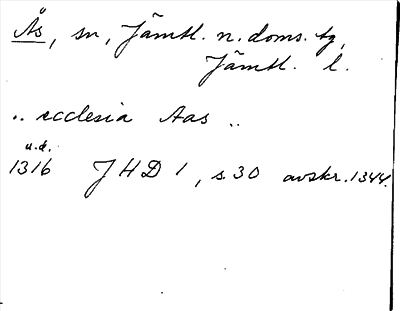 Ås, sn, Jämtl. n. doms. tg,
Jämtl. l.
.. ecclesia Aas ..
u.d.
1316 JHD 1, s. 30 avskr. 1344.